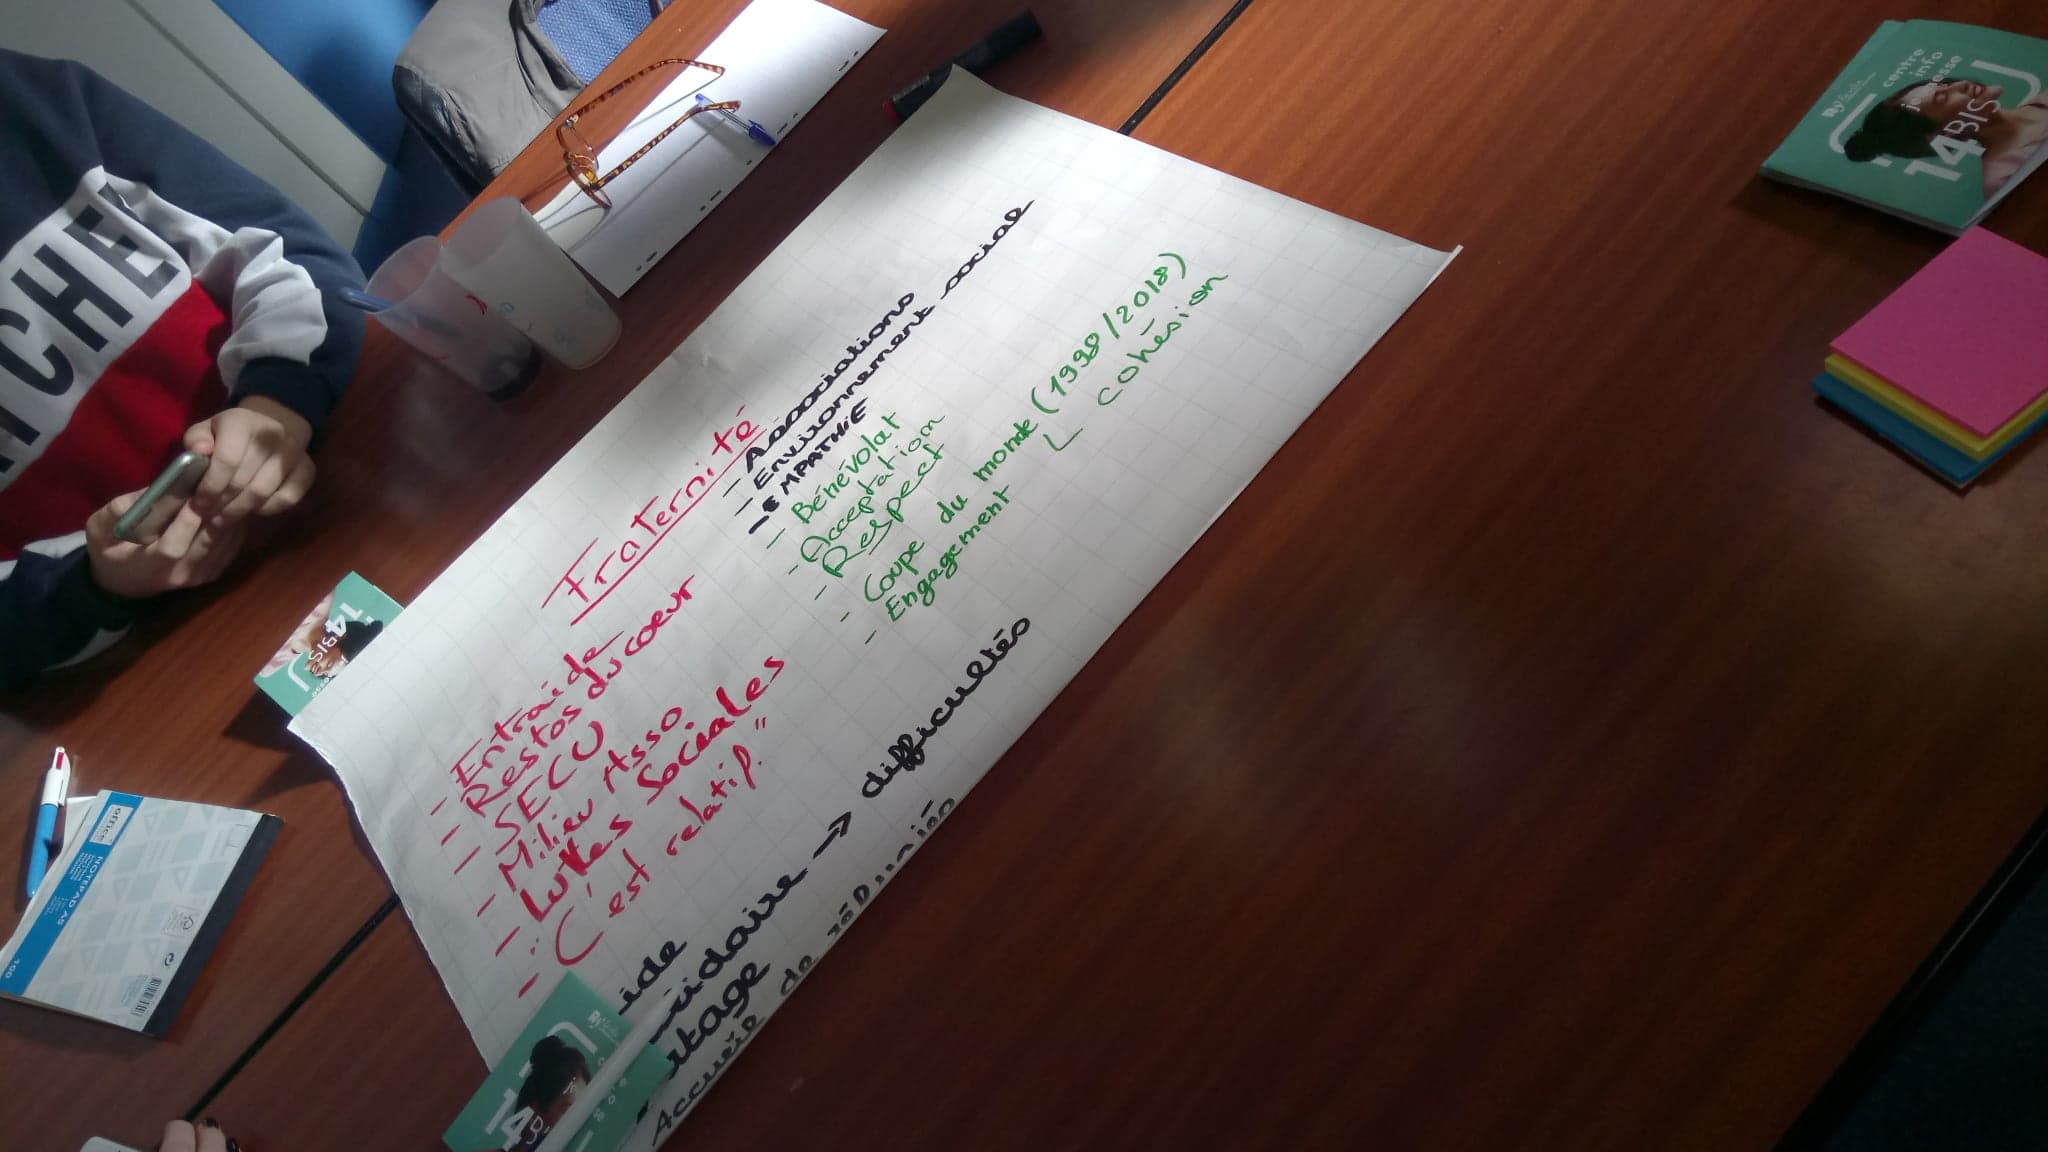 Fraternité
- Entraide
- Restos du coeur
- SECU
- Milieu Asso
- Luttes Sociales
- "C'est relatif"
- Associations
- Environnement social
- EMPATHiE
- Bénévolat
- Acceptation
- Respect
- Coupe du monde (1998/2018)
cohésion
- Engagement
→ difficultés
Accueil de
centre
info
14BIS
14BIS
office
NOTEPAD A5
100